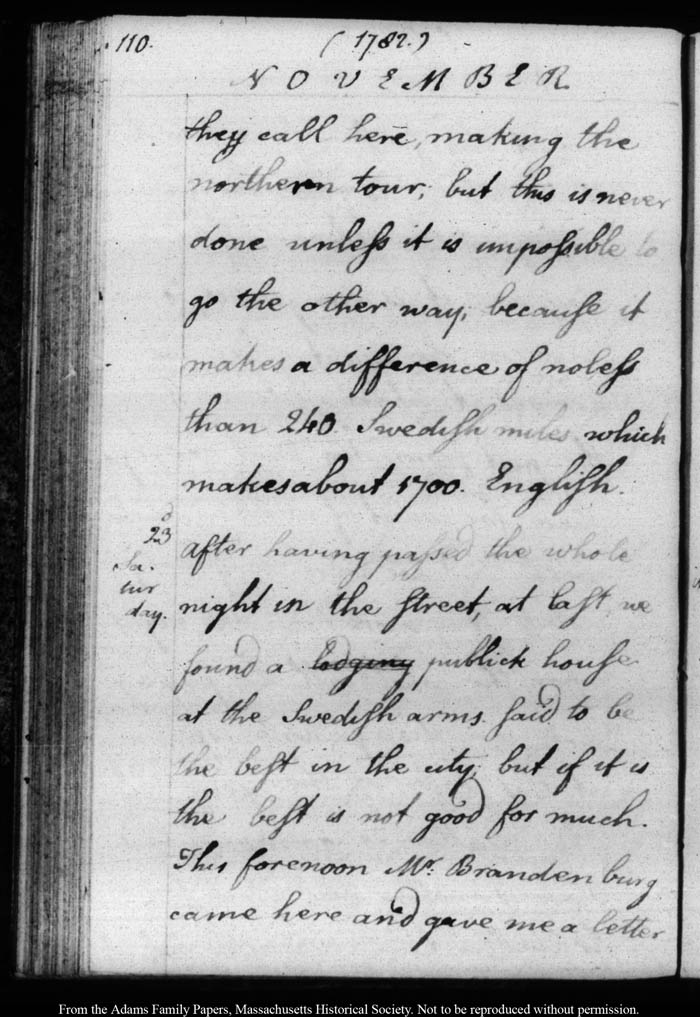 110.
(1782.)
NOVEMBER
they call here, making the
northern tour; but this is never
done unless it is impossible to
go the other way, because it
makes a difference of noless
than 240. Swedish miles which
makes about 1700. English.
23d
Sa-
tur
day.
after having passed the whole
night in the street, at last, we
found a lodging publick house
at the Swedish arms. said to be
the best in the city, but if it is
the best is not good for much.
This forenoon Mr. Brandenburg
came here and gave me a letter
From the Adams Family Papers, Massachusetts Historical Society. Not to be reproduced without permission.